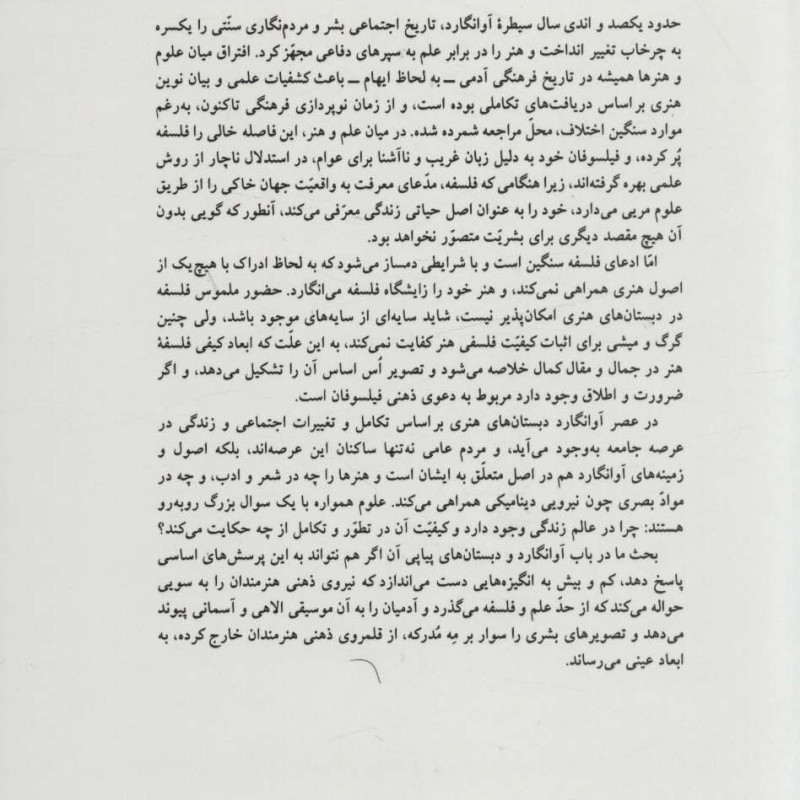 حدود یکصد و اندی سال سیطرۀ آوانگارد، تاریخ اجتماعی بشر و مردم‌نگاری سنّتی را یکسره
به چرخاب تغییر انداخت و هنر را در برابر علم به سپرهای دفاعی مجهّز کرد. افتراق میان علوم
و هنرها همیشه در تاریخ فرهنگی آدمی ــ به لحاظ ایهام ــ باعث کشفیات علمی و بیان نوین
هنری بر اساس دریافت‌های تکاملی بوده است، و از زمان نوپردازی فرهنگی تاکنون، به‌رغم
موارد سنگین اختلاف، محلّ مراجعه شمرده شده. در میان علم و هنر، این فاصله خالی را فلسفه
پُر کرده، و فیلسوفان خود به دلیل زبان غریب و ناآشنا برای عوام، در استدلال ناچار از روش
علمی بهره گرفته‌اند، زیرا هنگامی که فلسفه، مدّعای معرفت به واقعیّت جهان خاکی را از طریق
علوم مریی می‌دارد، خود را به عنوان اصل حیاتی زندگی معرّفی می‌کند، آنطور که گویی بدون
آن هیچ مقصد دیگری برای بشریّت متصوّر نخواهد بود.
امّا ادعای فلسفه سنگین است و با شرایطی دمساز می‌شود که به لحاظ ادراک با هیچ‌یک از
اصول هنری همراهی نمی‌کند، و هنر خود را زایشگاه فلسفه می‌انگارد. حضور ملموس فلسفه
در دبستان‌های هنری امکان‌پذیر نیست، شاید سایه‌ای از سایه‌های موجود باشد، ولی چنین
گرگ و میشی برای اثبات کیفیّت فلسفی هنر کفایت نمی‌کند، به این علّت که ابعاد کیفی فلسفۀ
هنر در جمال و مقال کمال خلاصه می‌شود و تصویر اُس اساس آن را تشکیل می‌دهد، و اگر
ضرورت و اطلاق وجود دارد مربوط به دعوی ذهنی فیلسوفان است.
در عصر آوانگارد دبستان‌های هنری بر اساس تکامل و تغییرات اجتماعی و زندگی در
عرصه جامعه به‌وجود می‌آید، و مردم عامی نه‌تنها ساکنان این عرصه‌اند، بلکه اصول و
زمینه‌های آوانگارد هم در اصل متعلّق به ایشان است و هنرها را چه در شعر و ادب، و چه در
موادّ بصری چون نیرویی دینامیکی همراهی می‌کند. علوم همواره با یک سوال بزرگ روبه‌رو
هستند: چرا در عالم زندگی وجود دارد و کیفیّت آن در تطوّر و تکامل از چه حکایت می‌کند؟
بحث ما در باب آوانگارد و دبستان‌های پیاپی آن اگر هم نتواند به این پرسش‌های اساسی
پاسخ دهد، کم و بیش به انگیزه‌هایی دست می‌اندازد که نیروی ذهنی هنرمندان را به سویی
حواله می‌کند که از حدّ علم و فلسفه می‌گذرد و آدمیان را به آن موسیقی الاهی و آسمانی پیوند
می‌دهد و تصویرهای بشری را سوار بر مِه مُدرکه، از قلمروی ذهنی هنرمندان خارج کرده، به
ابعاد عینی می‌رساند.